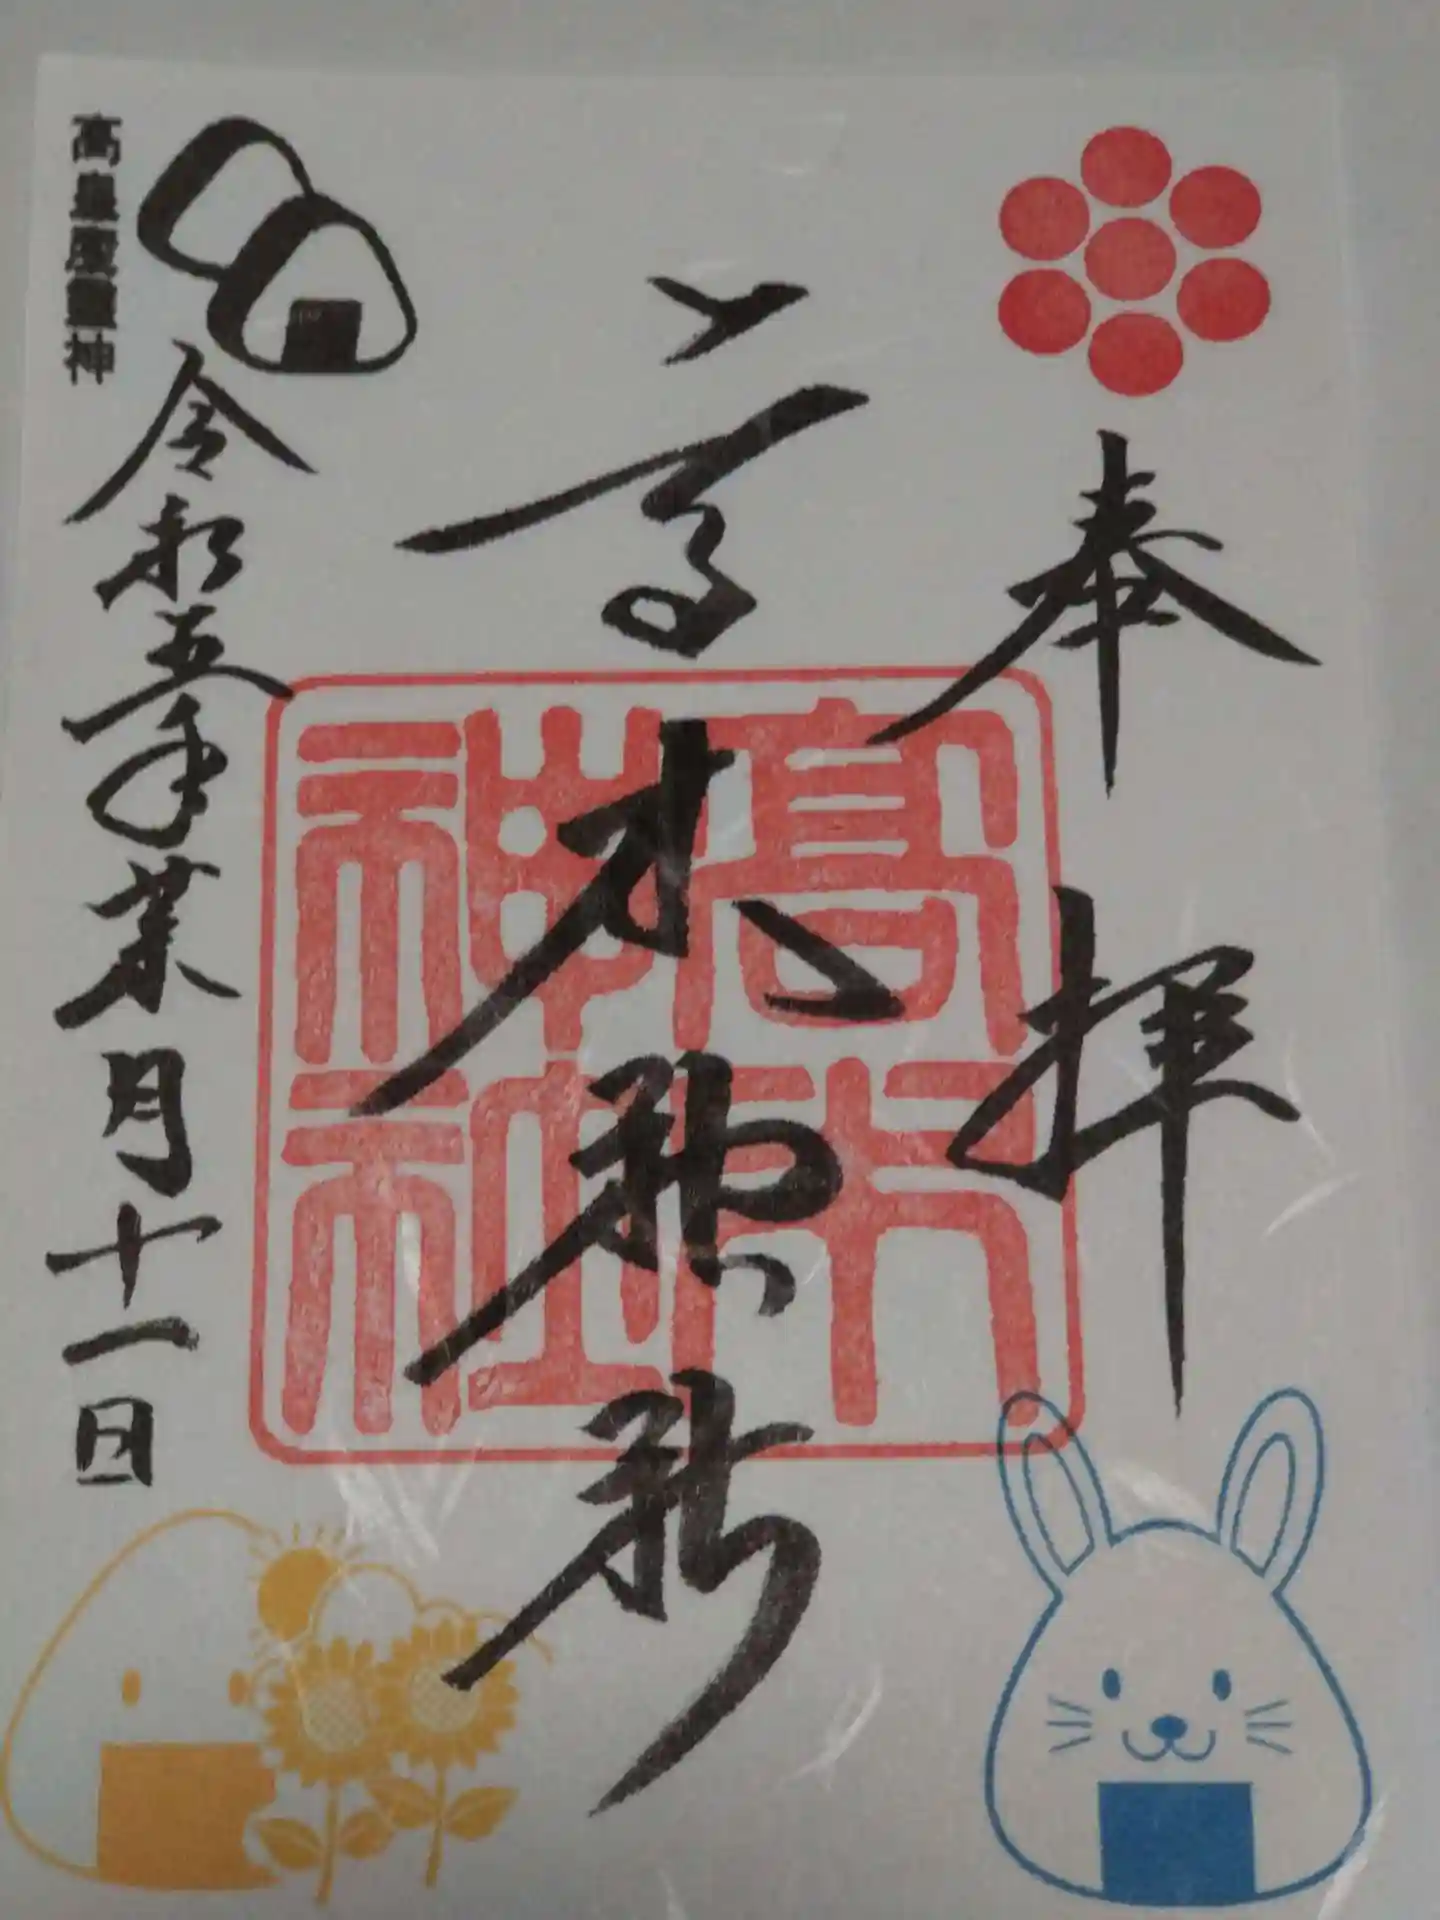 奉拝
高木神社
高木神社
令和五年葉月十一日
高皇産靈神